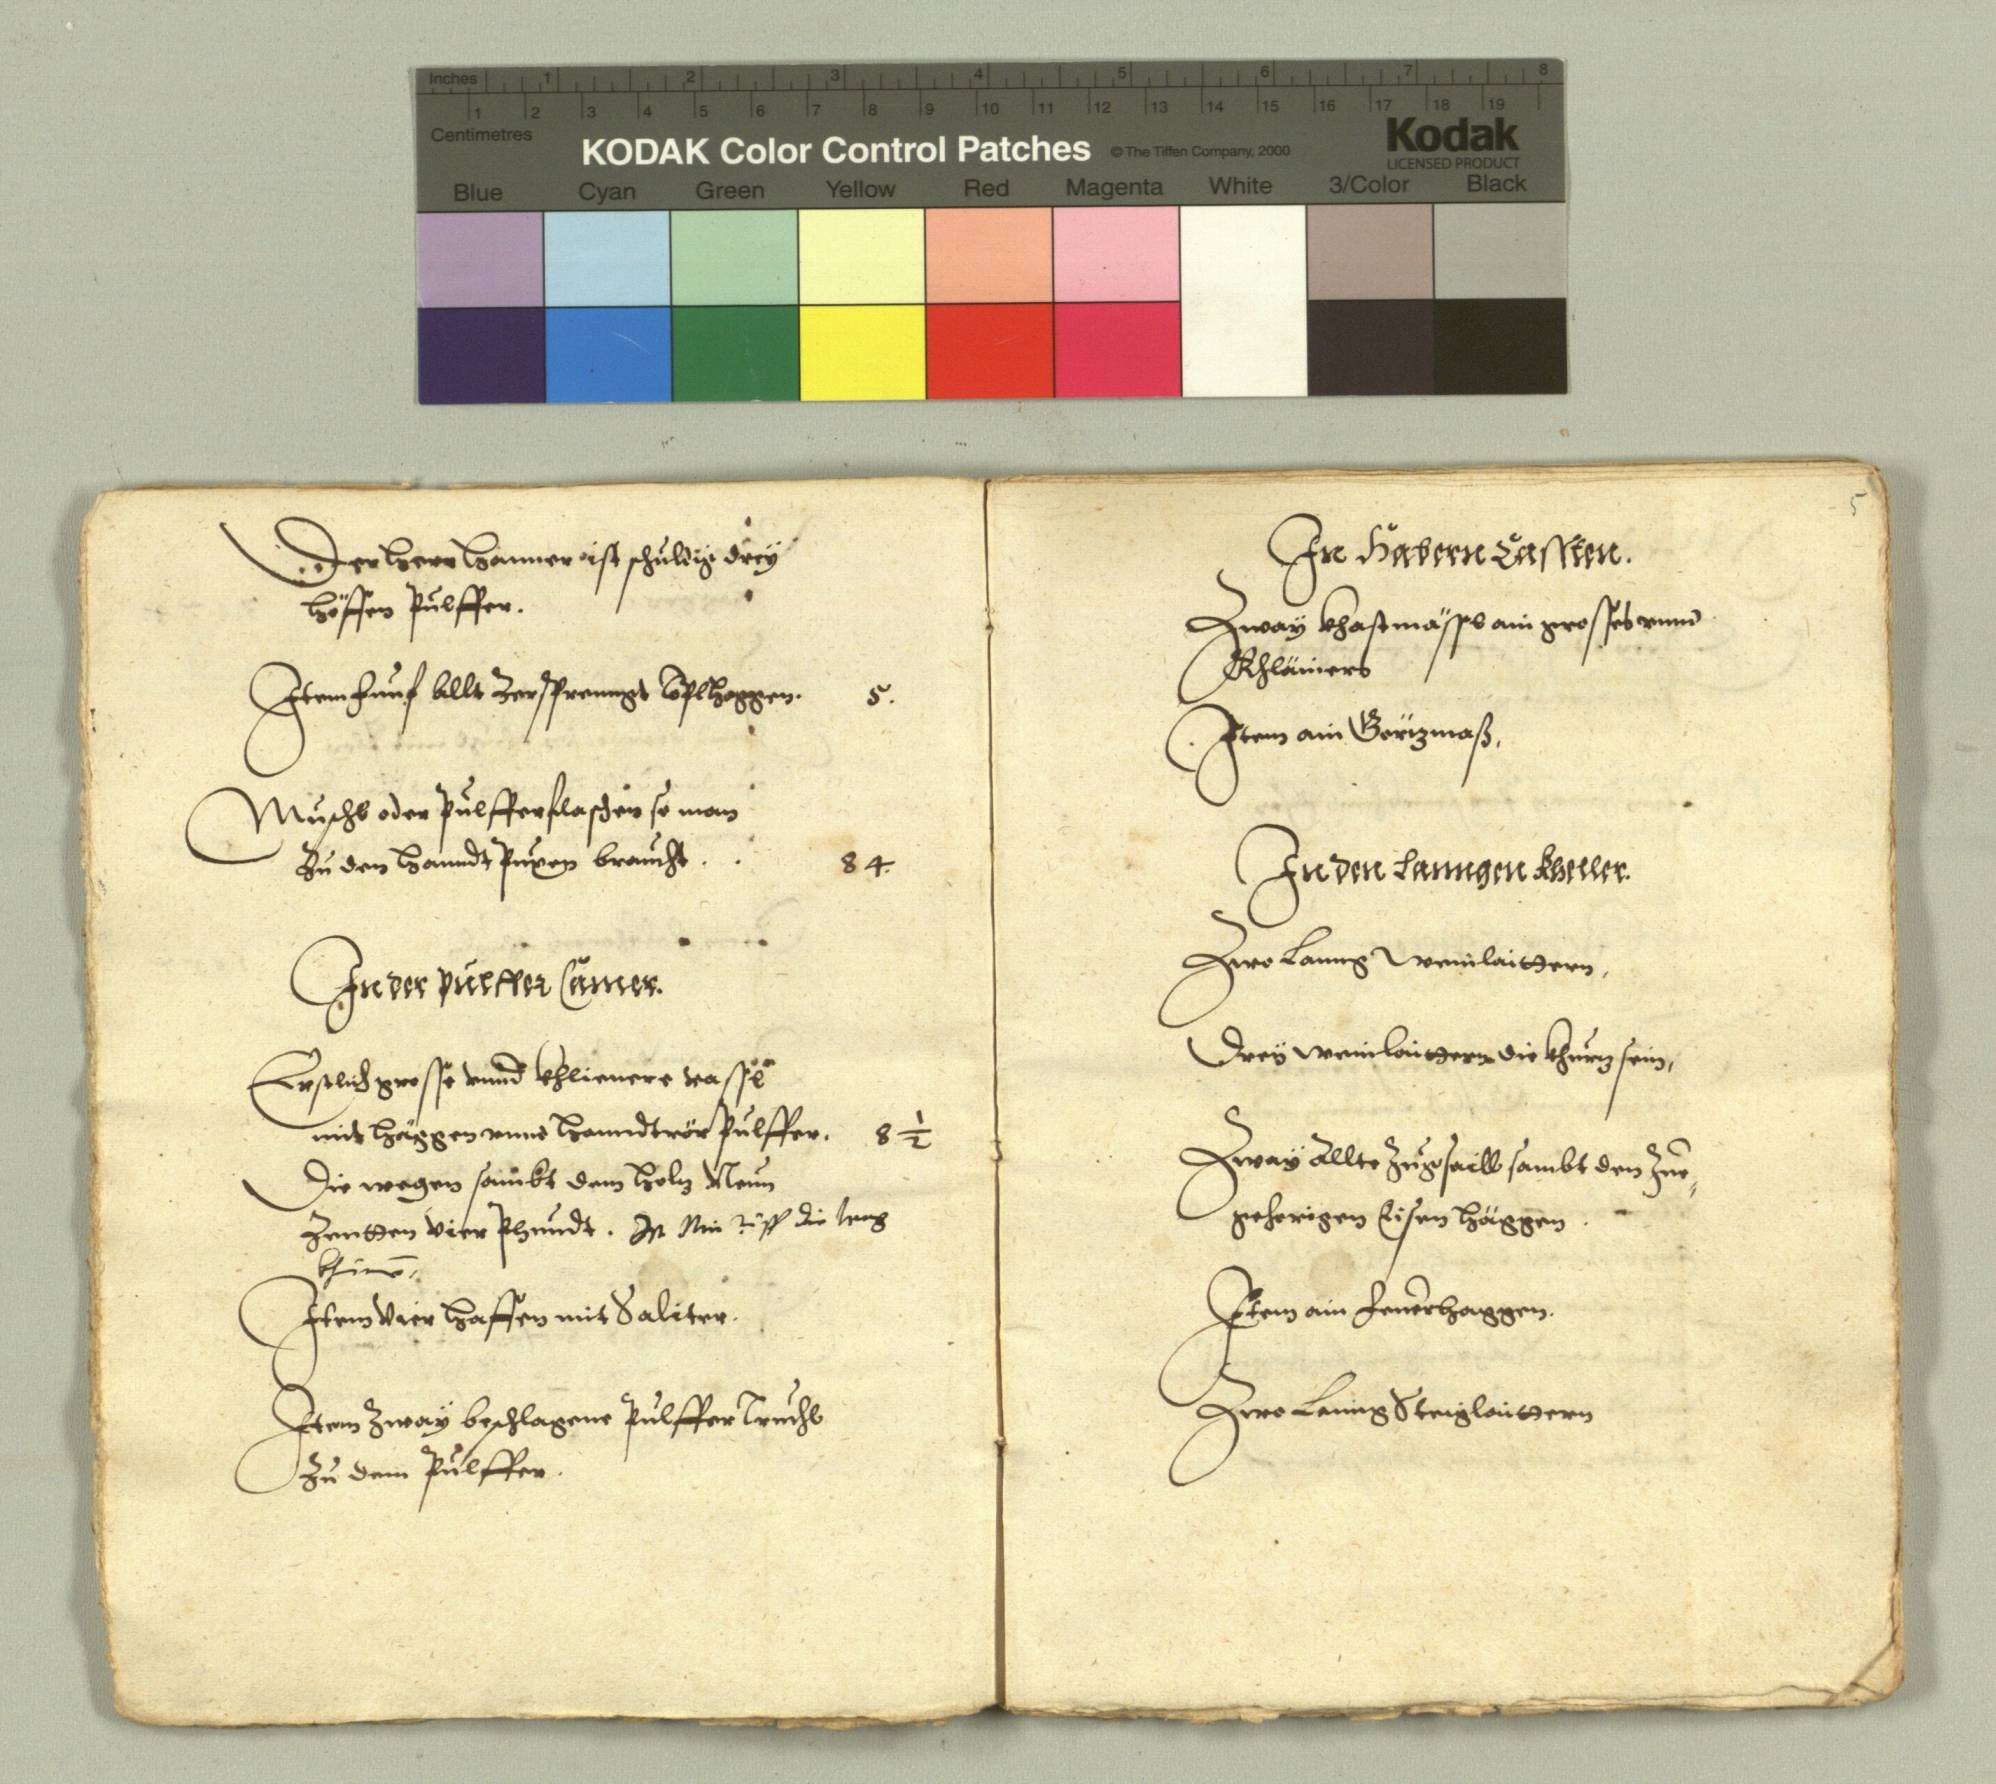 Inches 1 2 3 4 5 6 7 8
1 2 3 4 5 6 7 8 9 10 11 12 13 14 15 16 17 18 19
Centimetres
KODAK Color Control Patches © The Tiffen Company, 2000 Kodak
LICENSED PRODUCT
Blue Cyan Green Yellow Red Magenta White 3/Color Black
Der herr hanner ist schuldig drey
höffen Pulffer.
Item funf allt zersprenngt hoggen. 5.
Muschl oder Pulfferflaschen so man
Zu den hanndt Puxen braucht. 84.
In der Pulffer Camer.
Erstlich grosse vnnd khlienere vassl
mit häggen vnnd hanndtrör Pulffer. 8 1/2
Die wegen sambt dem holz Neun
Zentten vier Phundt. die
Item vier haffen mit Saliter.
Item Zway beschlagene Pulffer Truchl
Zu dem Pulffer.
5
In Habern Cassten.
Zway khastmässl ain grosses vnnd
Khlainers
Item ain Görizmaß,
In den Lanngen Kheller.
Zwo Lanng Weinlaittern,
Drey weinlaittern die khurz sein,
Zway Allte Zugsaill sambt den Zue,,
gehorigen Eisen häggen.
Item ain feuerhaggen.
Zwo Lanng Steiglaittern